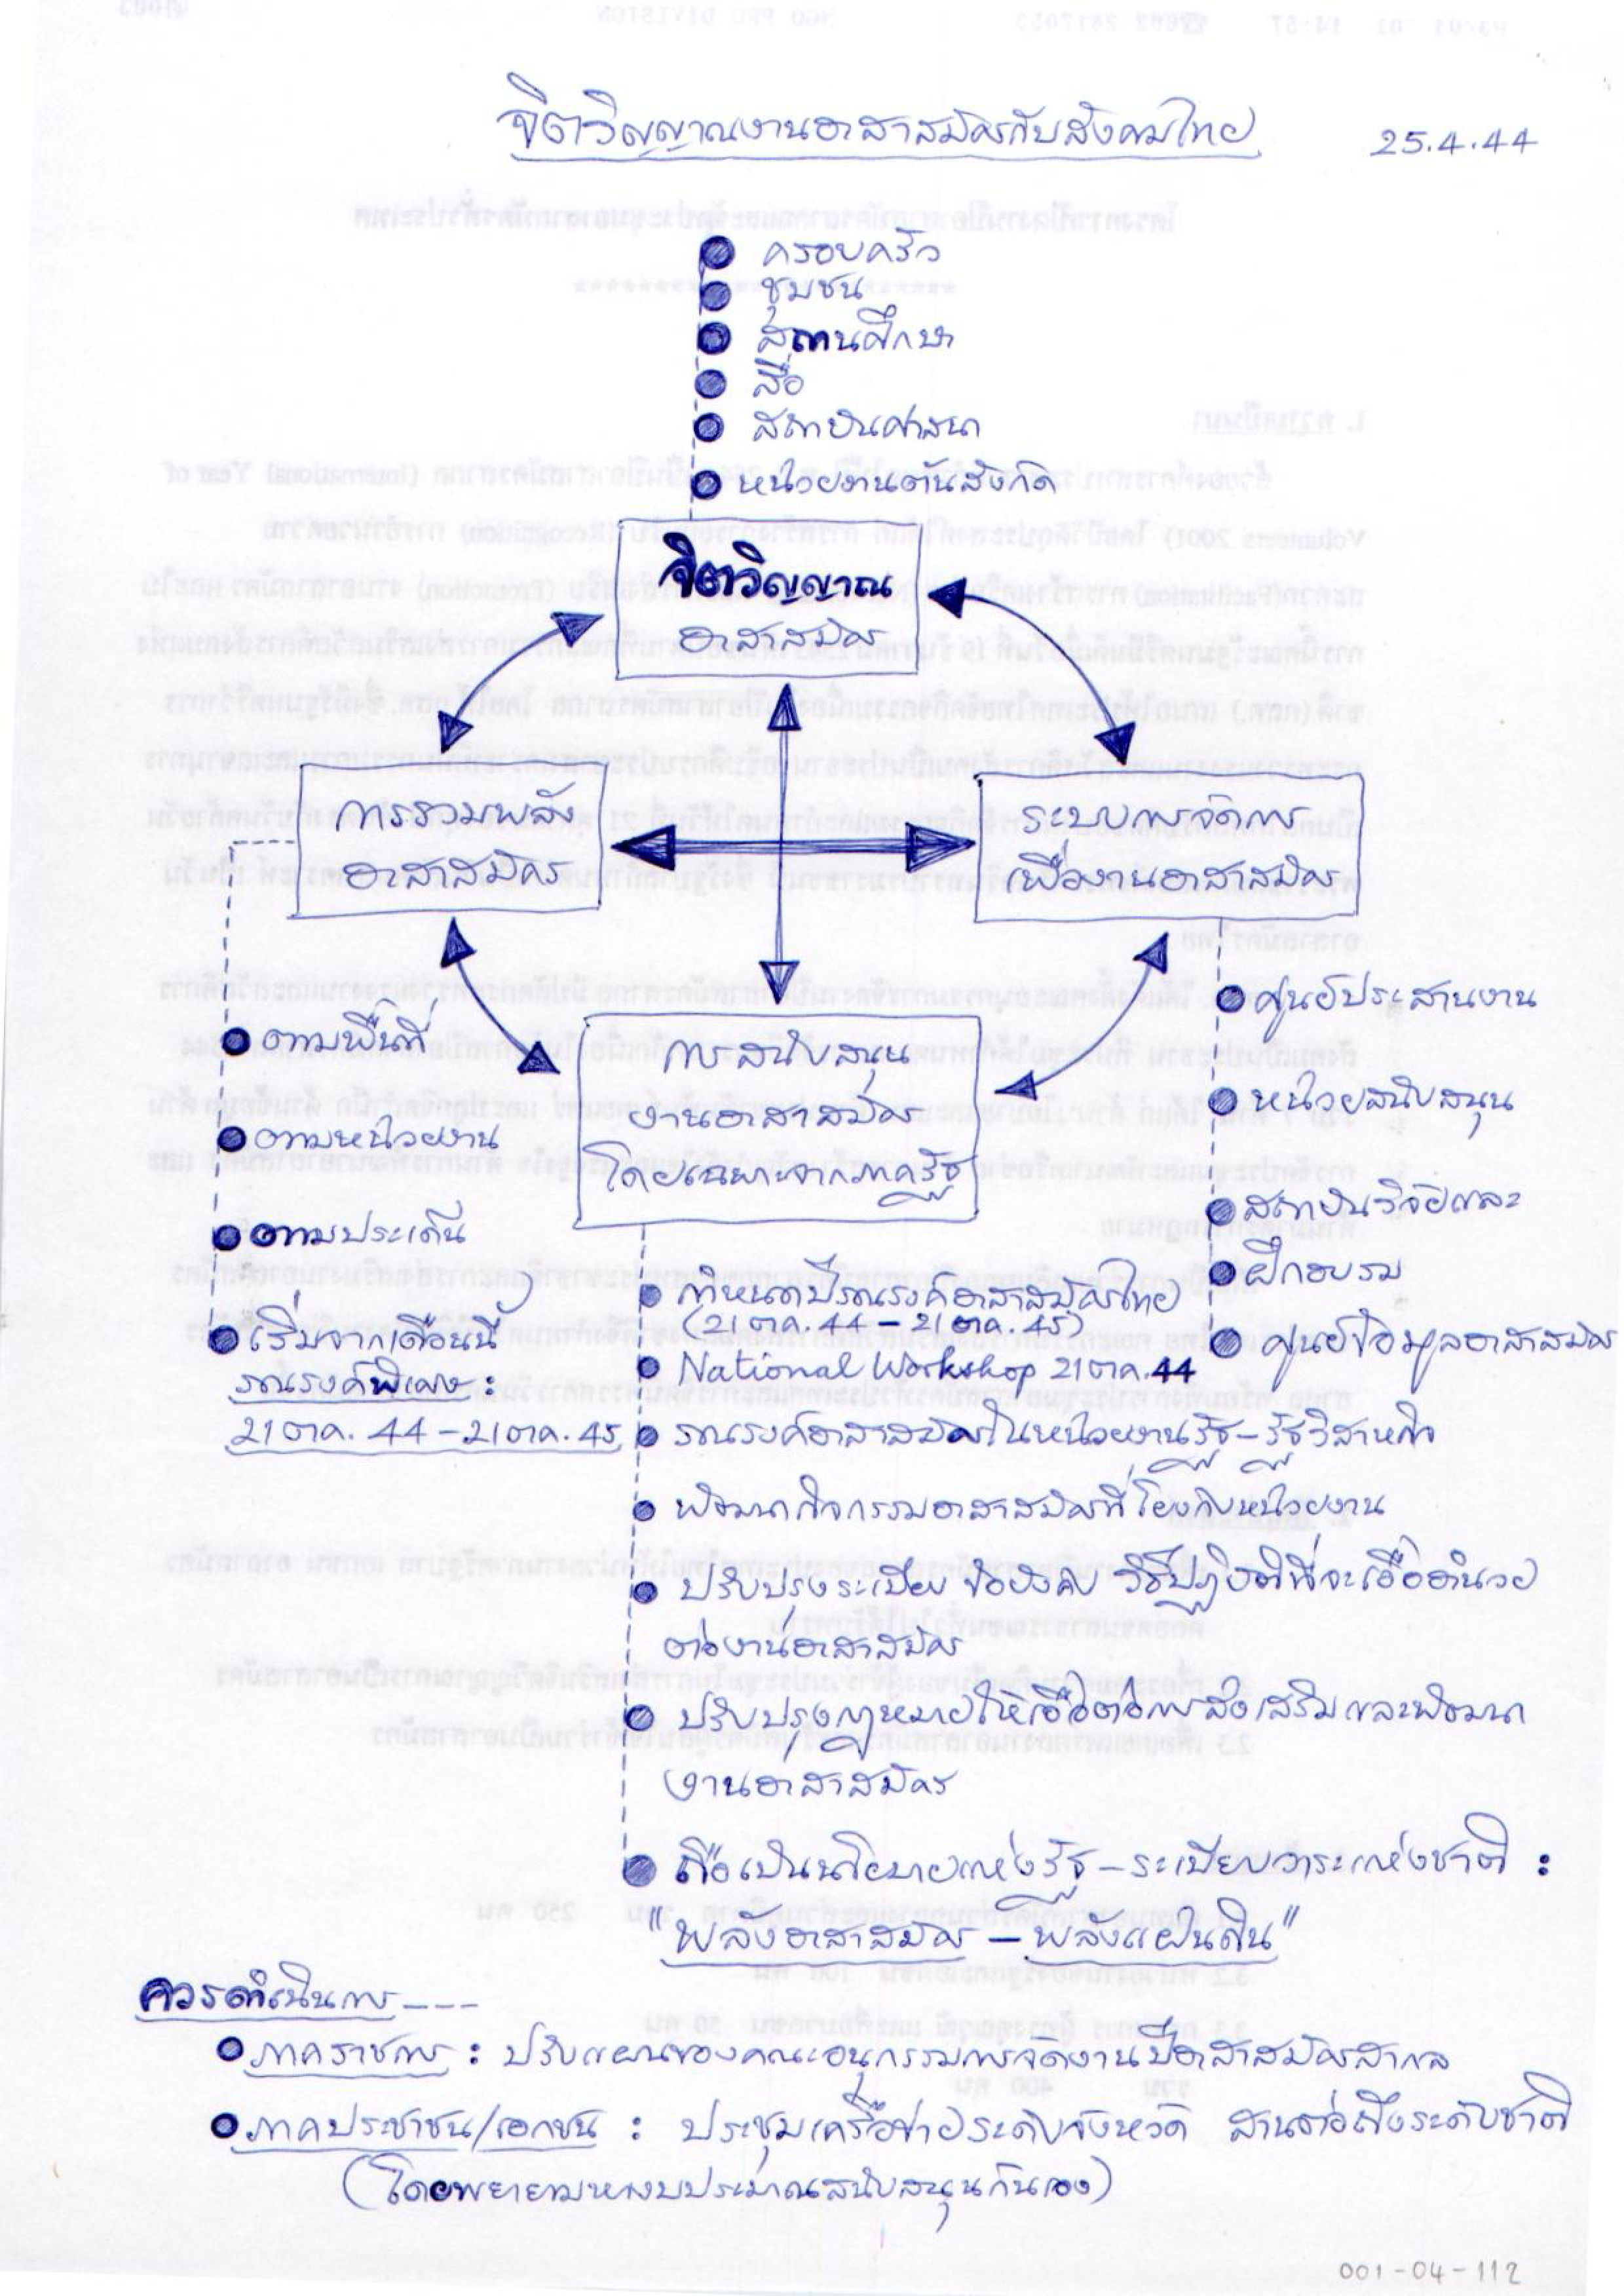 จิตวิญญาณงานอาสาสมัครกับสังคมไทย
25.4.44
ครอบครัว
ชุมชน
สถานศึกษา
สื่อ
สถาบันศาสนา
หน่วยงานต้นสังกัด
จิตวิญญาณ
อาสาสมัคร
การรวมพลัง
อาสาสมัคร
ระบบการจัดการ
เพื่องานอาสาสมัคร
การสนับสนุน
งานอาสาสมัคร
โดยเฉพาะจากภาครัฐ
ตามพื้นที่
ตามหน่วยงาน
ตามประเด็น
เริ่มจากเดือนนี้
รณรงค์พิเศษ :
21 ตค. 44 - 21 ตค. 45
ศูนย์ประสานงาน
หน่วยสนับสนุน
สถาบันวิจัยและ
ฝึกอบรม
ศูนย์ข้อมูลอาสาสมัคร
กำหนดปีรณรงค์อาสาสมัครไทย
(21 ตค. 44 - 21 ตค. 45)
National Workshop 21 ตค. 44
รณรงค์อาสาสมัครในหน่วยงานรัฐ - รัฐวิสาหกิจ
พัฒนากิจกรรมอาสาสมัครที่โยงกับหน่วยงาน
ปรับปรุงระเบียบ ข้อบังคับ วิธีปฏิบัติที่จะเอื้ออำนวย
ต่องานอาสาสมัคร
ปรับปรุงกฎหมายให้เอื้อต่อการส่งเสริมและพัฒนา
งานอาสาสมัคร
ถือเป็นนโยบายแห่งรัฐ - ระเบียบวาระแห่งชาติ :
"พลังอาสาสมัคร - พลังแผ่นดิน"
ควรดำเนินการ ---
ภาคราชการ : ปรับแผนของคณะอนุกรรมการจัดงานปีอาสาสมัครสากล
ภาคประชาชน/เอกชน : ประชุมเครือข่ายระดับจังหวัด สานต่อถึงระดับชาติ
(โดยพยายามหางบประมาณสนับสนุนกันเอง)
001-04-112